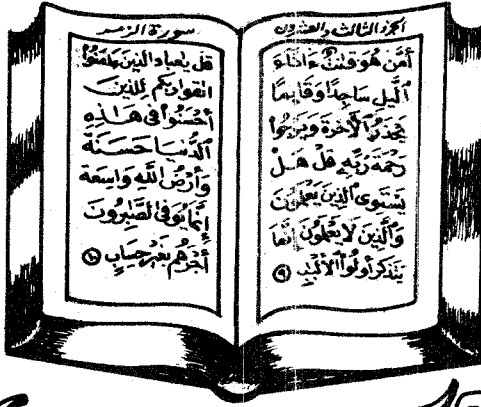 الجزء الثالث والعشرون
أَمَّنْ هُوَ قَٰنِتٌ ءَانَآءَ
ٱلَّيْلِ سَاجِدًا وَقَآئِمًا
يَحْذَرُ ٱلْأَخِرَةَ وَيَرْجُوا۟
رَحْمَةَ رَبِّهِۦ قُلْ هَلْ
يَسْتَوِى ٱلَّذِينَ يَعْلَمُونَ
وَٱلَّذِينَ لَا يَعْلَمُونَ إِنَّمَا
يَتَذَكَّرُ أُو۟لُوا۟ ٱلْأَلْبَٰبِ ٩
سورة الزمر
قُلْ يَٰعِبَادِ ٱلَّذِينَ ءَامَنُوا۟
ٱتَّقُوا۟ رَبَّكُمْ لِلَّذِينَ
أَحْسَنُوا۟ فِى هَٰذِهِ
ٱلدُّنْيَا حَسَنَةٌ
وَأَرْضُ ٱللَّهِ وَاسِعَةٌ
إِنَّمَا يُوَفَّى ٱلصَّٰبِرُونَ
أَجْرَهُم بِغَيْرِ حِسَابٍ ١٠